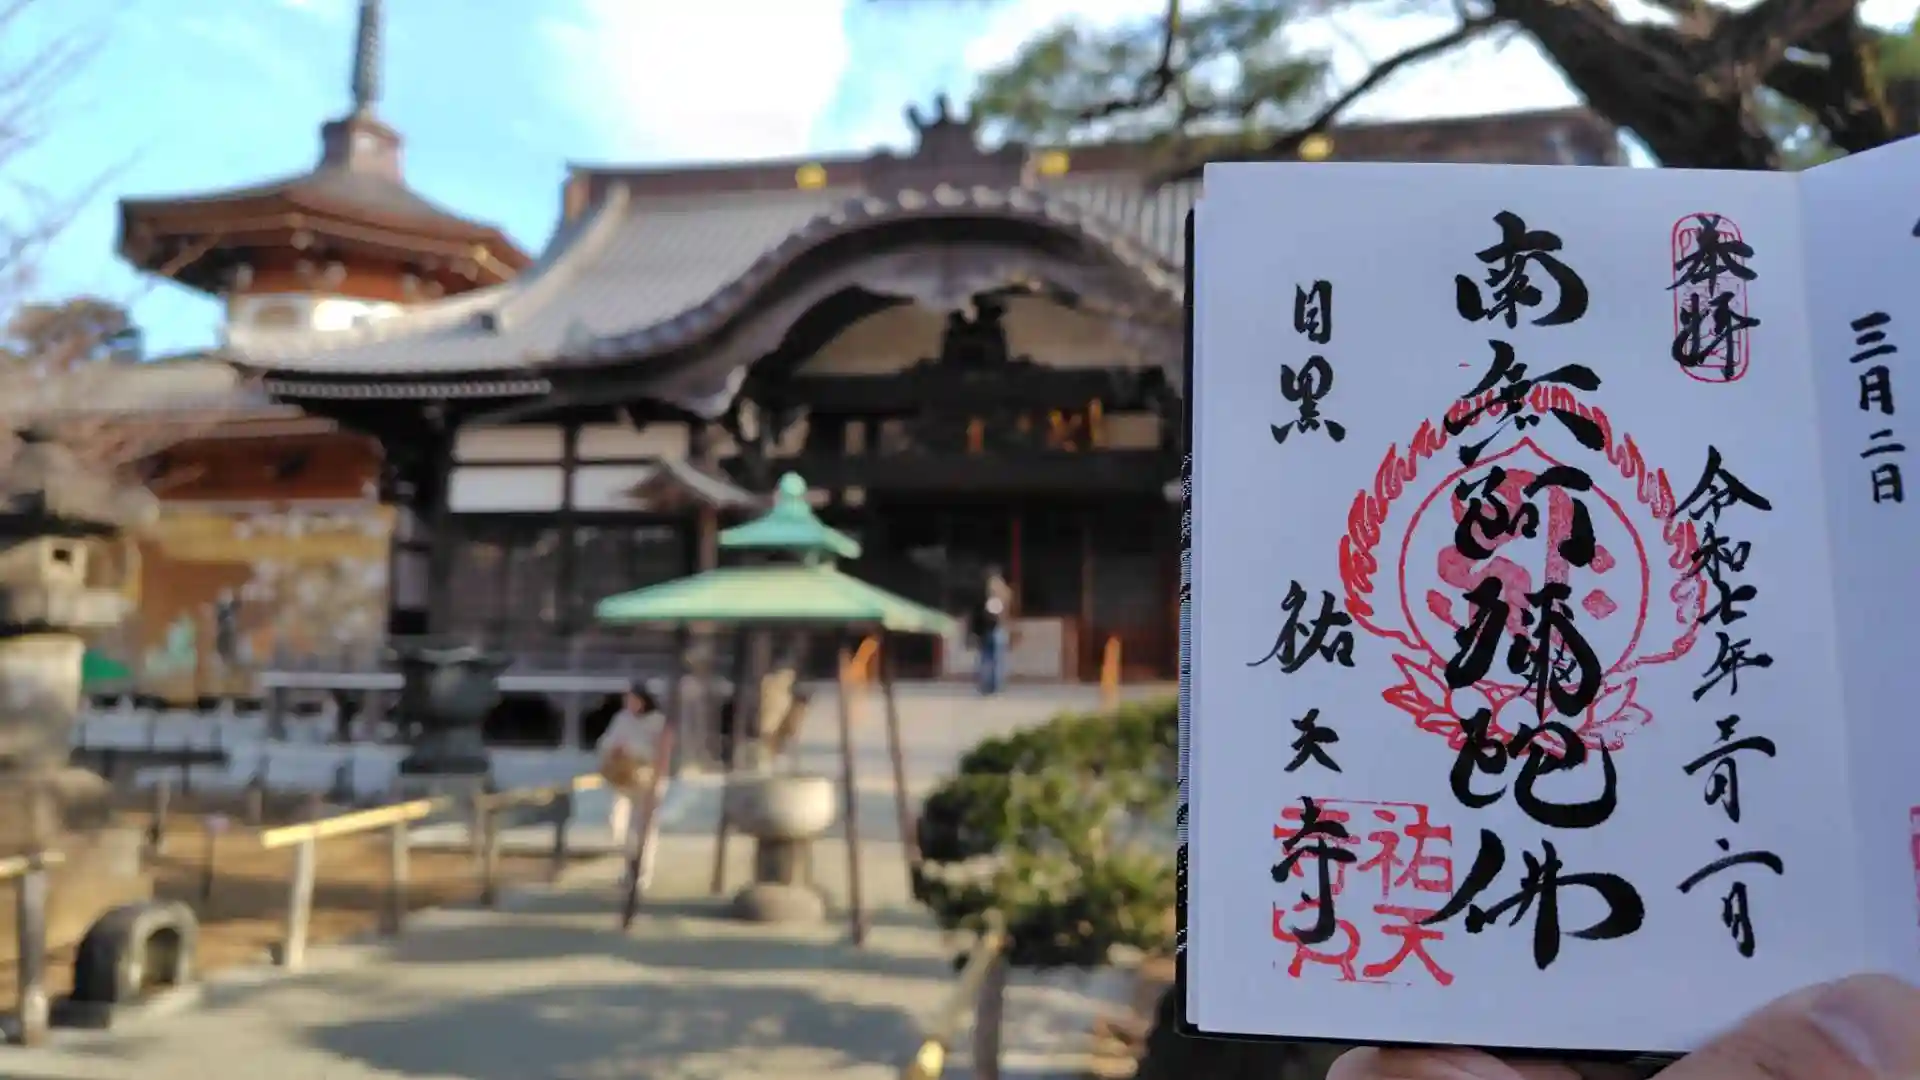 三月二日
奉拝
令和七年三月二日
南無阿彌陀佛
目黒 祐天寺
祐天
寺印